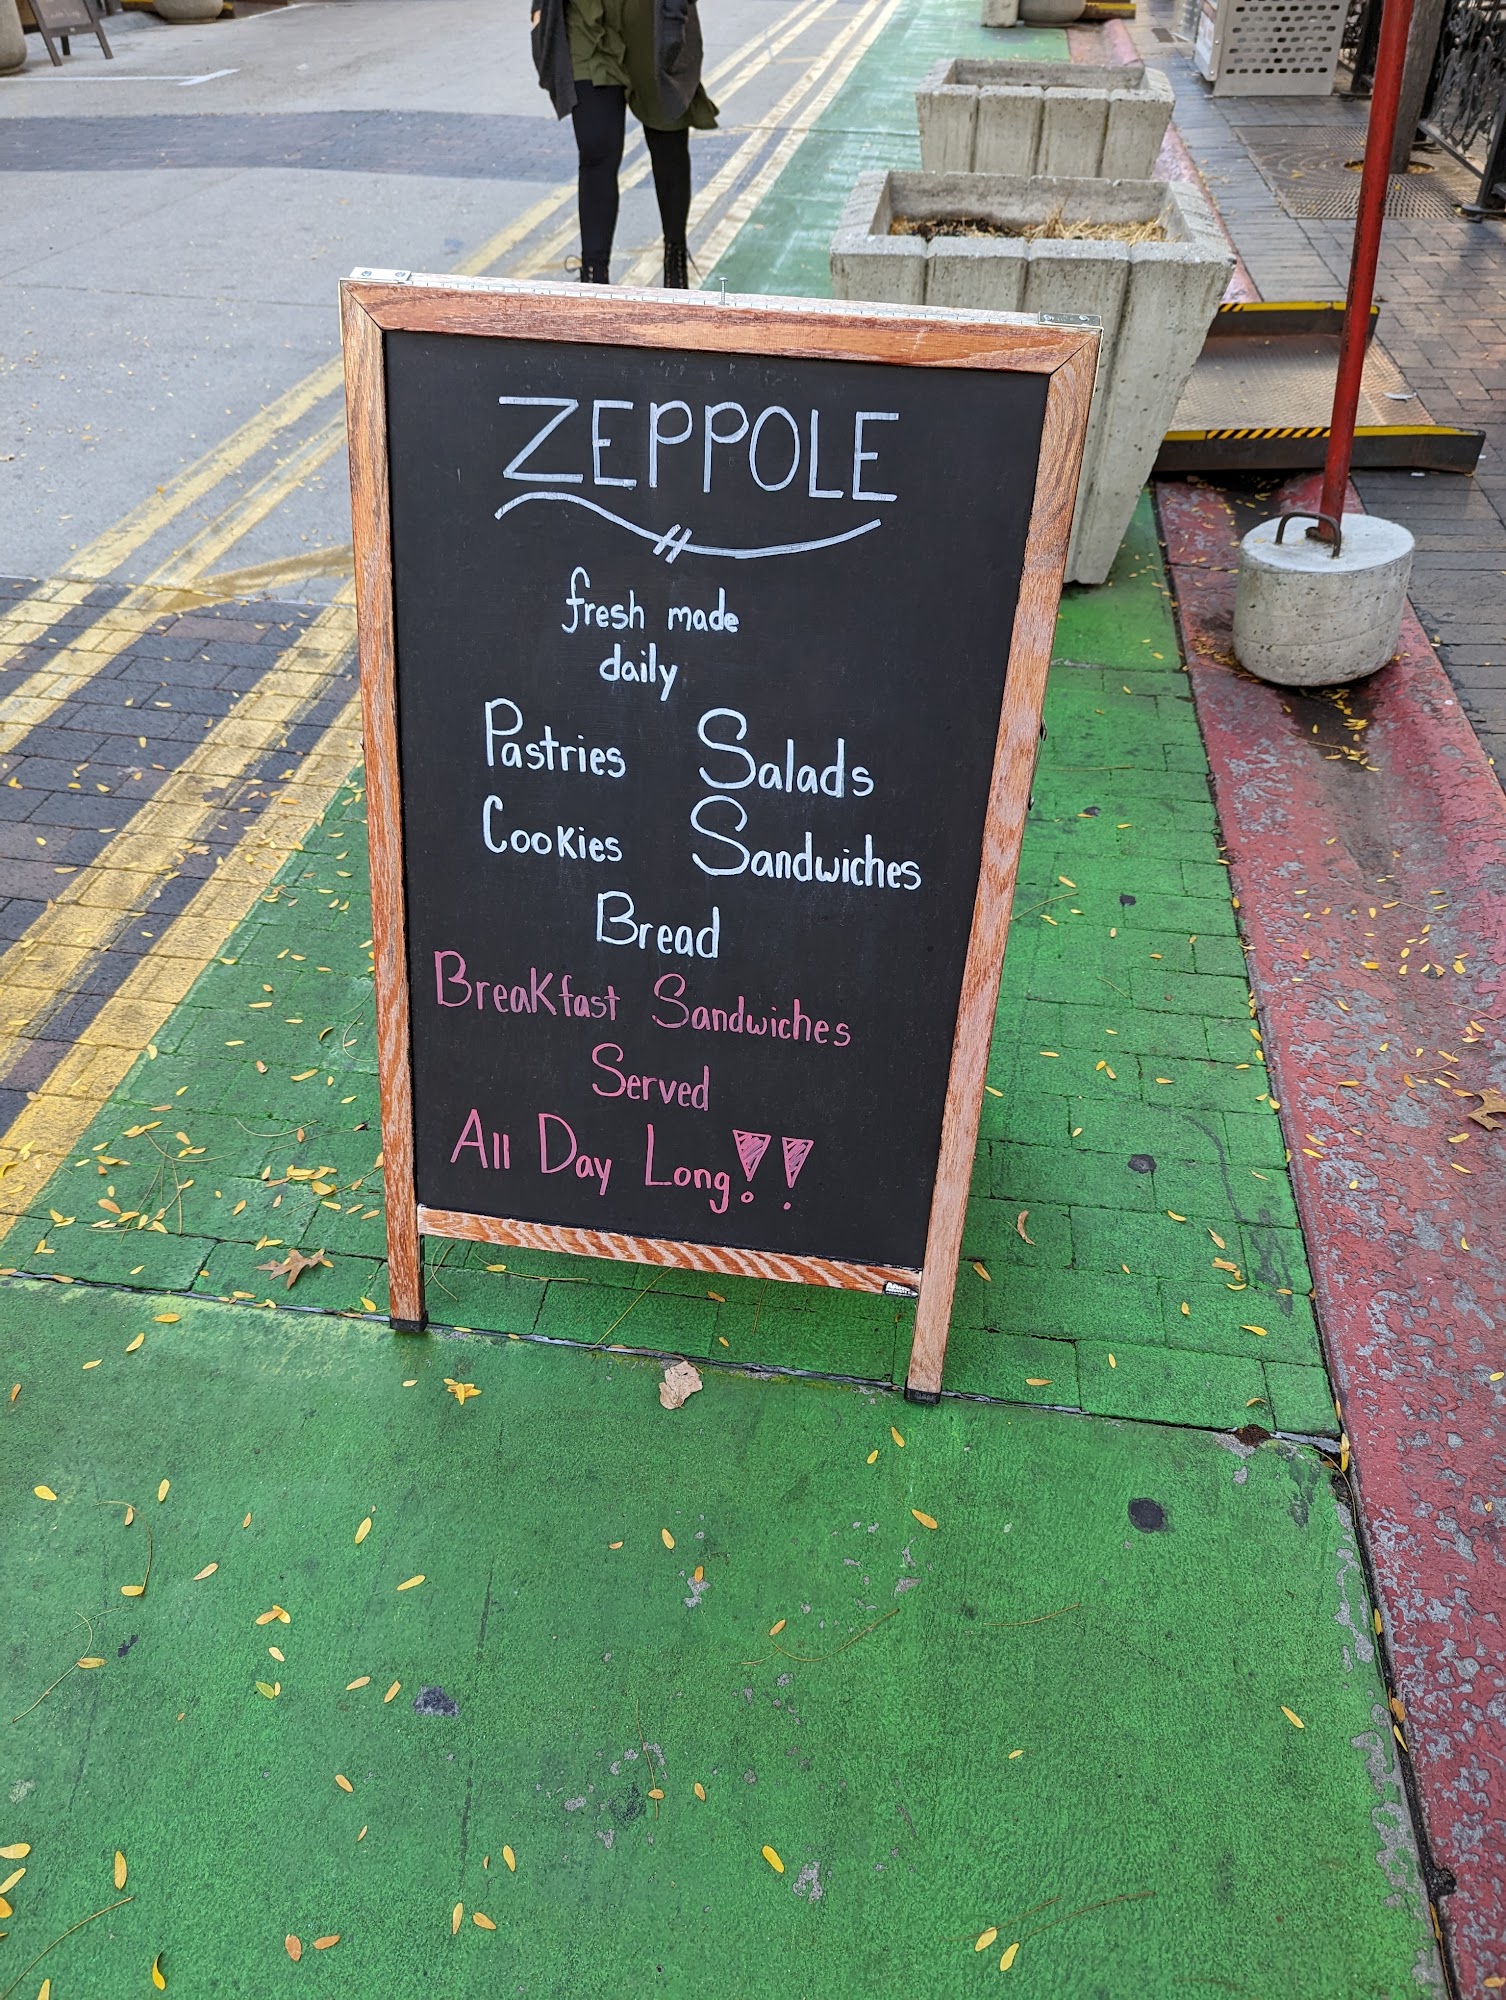 ZEPPOLE
fresh made
daily
Pastries Salads
Cookies Sandwiches
Bread
Breakfast Sandwiches
Served
All Day Long!!